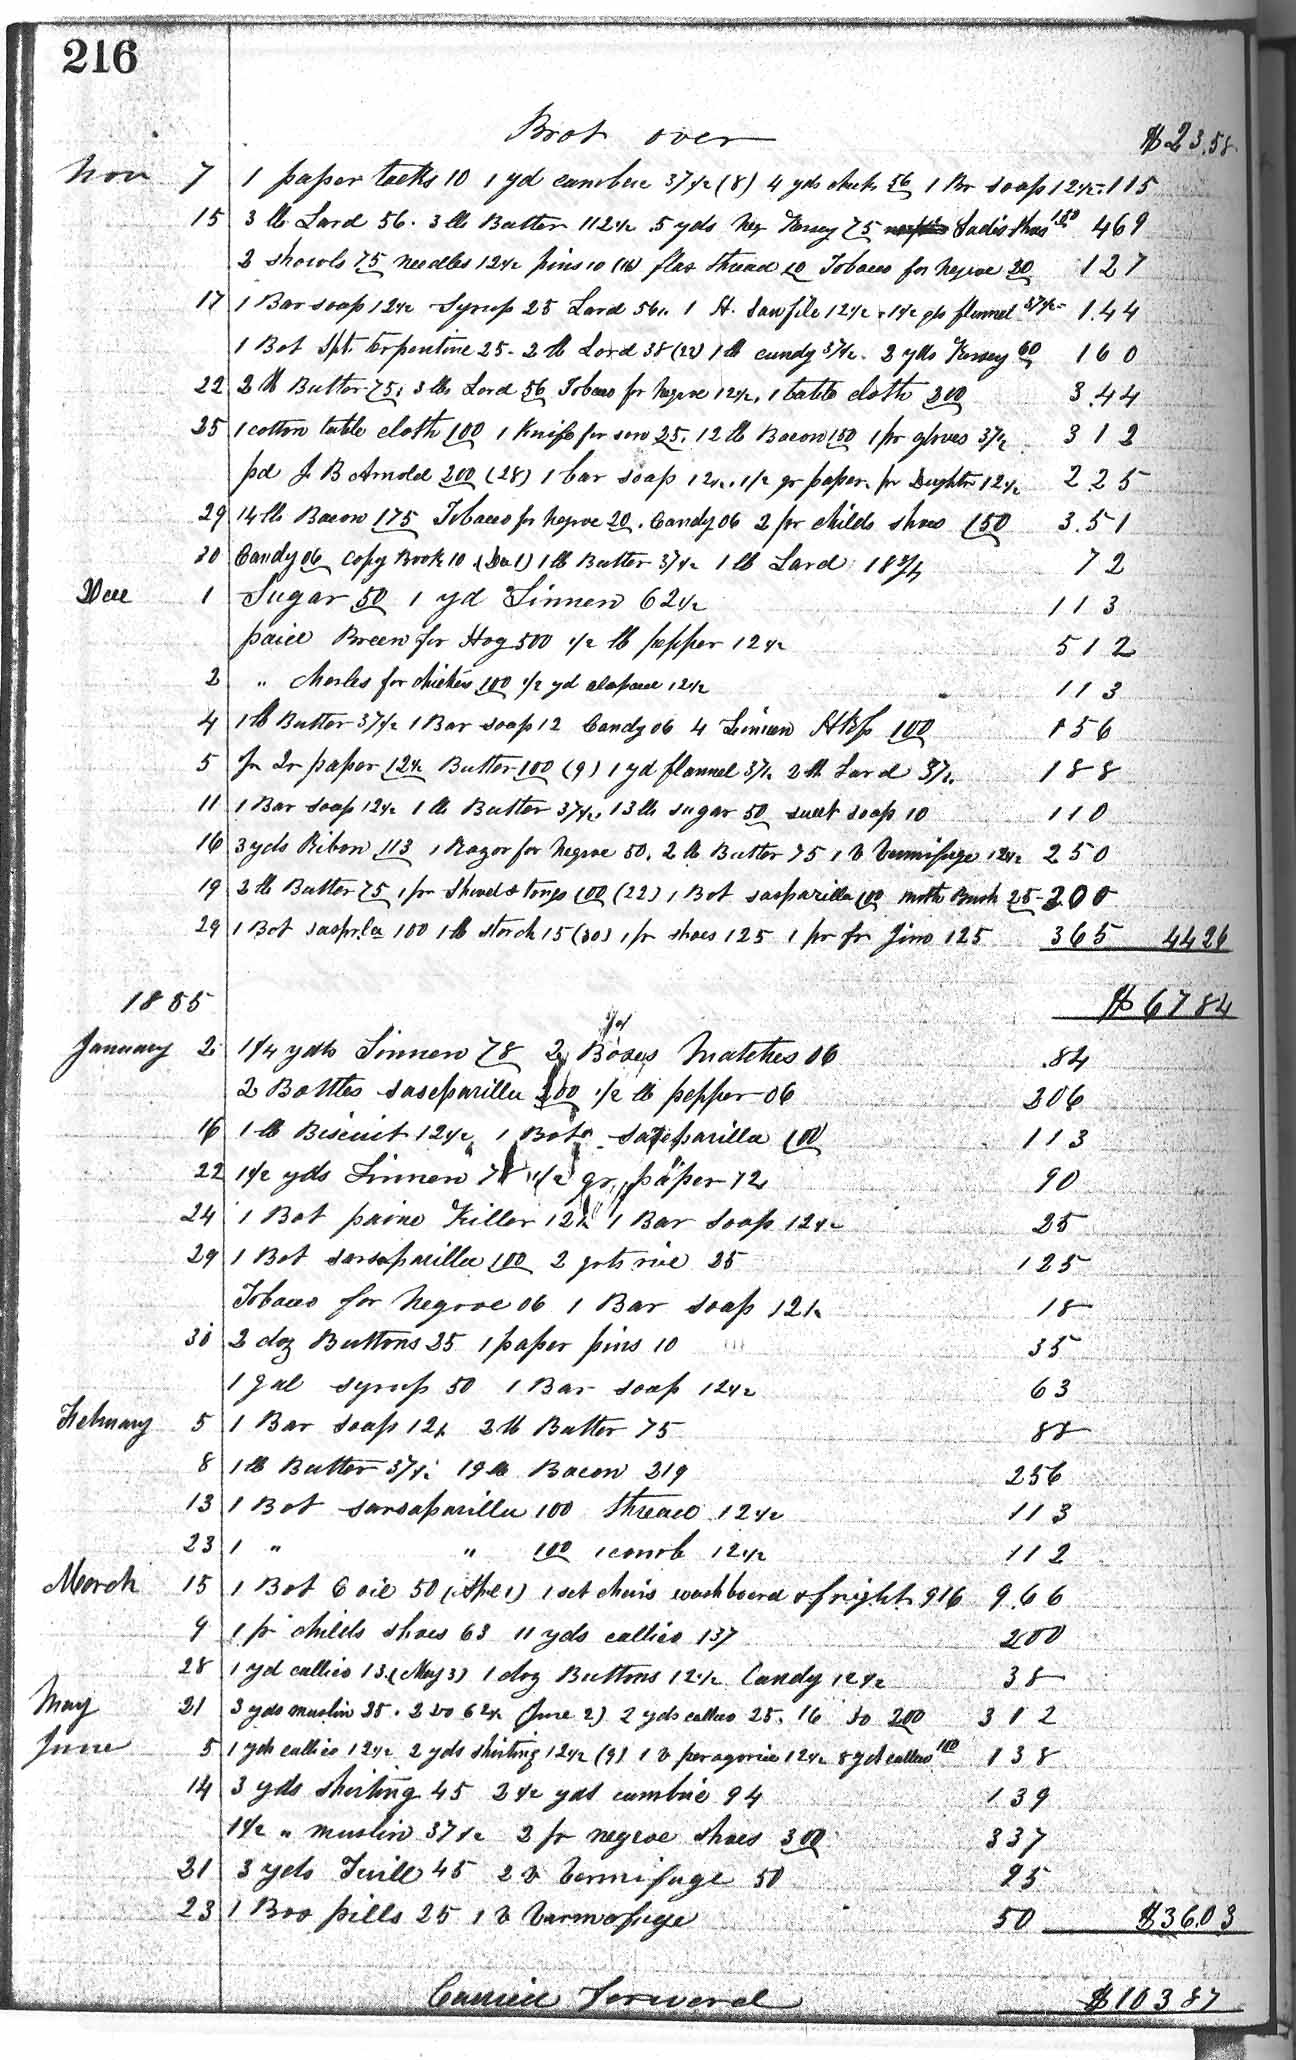 216
Brot over $23.58
Nov 7 1 paper tacks 10 1 yd cambric 37½ (8) 4 yds check 56 1 Br soap 12½ 115
15 3 lb Lard 56. 3 lb Butter 112½ 5 yds neg Kersey 75 Ladis shoes 150 469
2 shawls 75 needles 12½ pins 10 (16) flax thread 10 Tobacco for negroe 20 127
17 1 Bar soap 12½ Syrup 25 Lard 56. 1 H. Saw file 12½ 1½ yds flannel 37½ 1.44
1 Bot Spt. Terpentine 25. 2 lb Lard 38 (22) 1 lb candy 37½. 2 yds Kersey 60 160
22 2 lb Butter 75. 3 lbs Lard 56 Tobaco for negroe 12½. 1 table cloth 200 3.44
25 1 cotton table cloth 100 1 Knife for son 25. 12 lb Bacon 150 1 pr gloves 37½ 312
pd J B Arnold 200 (28) 1 bar soap 12½. 1/2 qr paper pr Daughter 12½ 225
29 14 lb Bacon 175 Tobacco for negroe 20. Candy 06 2 pr childs shoes 150 3.51
30 Candy 06 copy Book 10 (Dec 1) 1 lb Butter 37½ 1 lb Lard 18¾ 72
Dece 1 Sugar 50 1 yd Linnen 62½ 113
paid Breen for Hog 500 1/2 lb pepper 12½ 512
2 " Charles for chickens 100 1/2 yd alapaca 12½ 113
4 1 lb Butter 37½ 1 Bar soap 12 Candy 06 4 Linnen Hkfs 100 156
5 1 qr paper 12½ Butter 100 (9) 1 yd flannel 37½ 2 lb Lard 37½ 188
11 1 Bar soap 12½ 1 lb Butter 37½. 13 lb sugar 50 sweet soap 10 110
16 3 yds Ribon 113 1 Razor for negroe 50. 2 lb Butter 75 1 V Vermifuge 12½ 250
19 2 lb Butter 75 1 pr Shovel & tongs 100 (22) 1 Bot sasparilla 100 moth Brush 25 300
29 1 Bot saspla 100 1 lb starch 15 (30) 1 pr shoes 125 1 pr for Jino 125 365 4426
$ 6784
1855
January 2 1¼ yds Linnen 78 2 Boxes Matches 06 .84
2 Bottles saseparilla 200 1/2 lb pepper 06 206
16 1 lb Biscuit 12½ 1 Bot saseparilla 100 113
22 1½ yds Linnen 78 1/2 qr paper 12 90
24 1 Bot paine Killer 12½ 1 Bar soap 12½ 25
29 1 Bot sarsaparilla 100 2 qrts rice 25 125
Tobacco for negroe 06 1 Bar soap 12½ 18
30 2 doz Buttons 25 1 paper pins 10 35
1 gal syrup 50 1 Bar soap 12½ 63
February 5 1 Bar soap 12½ 2 lb Butter 75 88
8 1 lb Butter 37½ 19 lb Bacon 219 256
13 1 Bot sarsaparilla 100 thread 12½ 113
23 1 " " 100 1 comb 12½ 112
March 15 1 Bot C oil 50 (Apl 1) 1 set chairs washboard & freight 916 9.66
9 1 pr childs shoes 63 11 yds callico 137 200
28 1 yd callico 13. (May 3) 1 doz Buttons 12½ Candy 12½ 38
May 21 3 yds muslin 25. 2 Do 62½ (June 2) 2 yds callico 25. 16 Do 200 312
June 5 1 yd callico 12½ 2 yds shirting 12½ (9) 1 V peragoric 12½ 8 yd callico 100 138
14 3 yds shirting 45 2½ yds cambric 94 139
1½ " muslin 37½ 2 pr negroe shoes 300 337
21 3 yds Twill 45 2 V Vermifuge 50 95
23 1 Box pills 25 1 V Varmofuge 50 $36.03
Carried Forward $10387